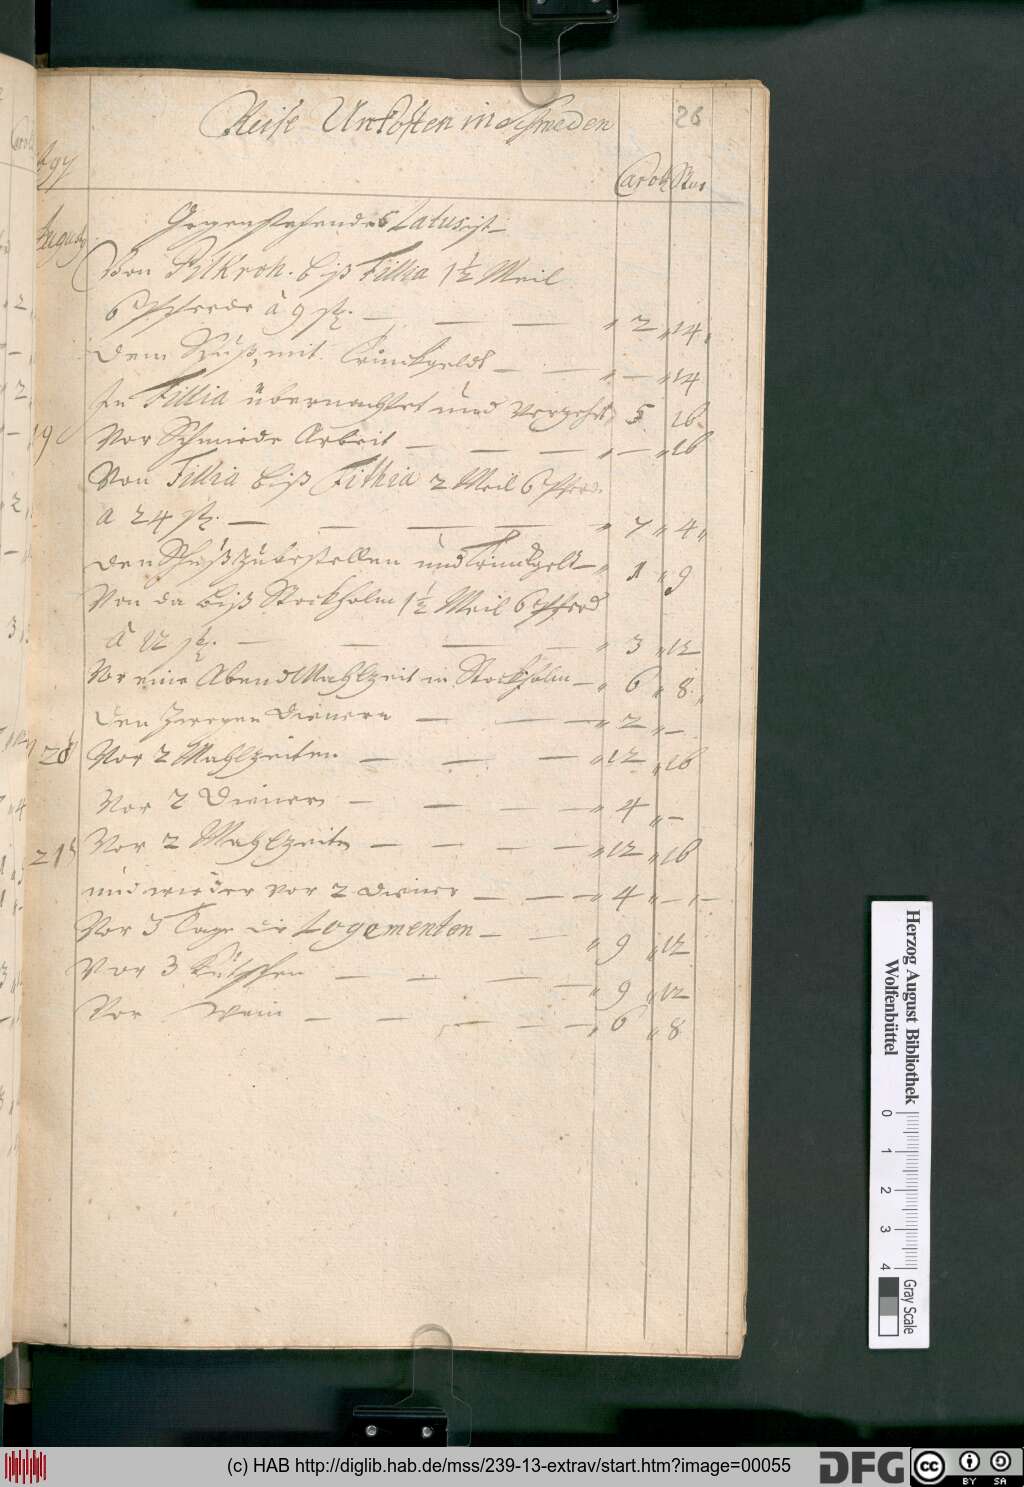 26
Reise Unkosten in Schweden
Carol Stür
Augusti
Gegenstehendes Latus ist
Von Pilkroh. biß Fillia 1½ Meil
6 Pferde à 9 st. — — — „ 2 „ 14 „
Dem mit Trinckgeldt — — „ — „ 14
In Fillia übernachtet und verzehrt 5 16
19 Vor Schmiede Arbeit — — — „ — „ 16
Von Fillia biß Fithia 2 Meil 6 Pferd
à 24 st. — — — — „ 7 „ 4 „
den Schuß zu bestellen und Trinckgelt — „ 1 „ 9
Von da biß Stockholm 1½ Meil 6 Pferd
à 12 st. — — — — „ 3 „ 12
Vor eine Abend Mahlzeit in Stockholm — „ 6 „ 8 „
den Zweyen Dienern — — — „ 2 „ —
20 Vor 2 Mahlzeiten — — — „ 12 „ 16
Vor 2 Diener — — — — „ 4 „ —
21 Vor 2 Mahlzeiten — — — — „ 12 „ 16
und wieder vor 2 diener — — — „ 4 „ —
Vor 3 Tage die Logementen — — „ 9 „ 12
Vor 3 Kutschen — — — — „ 9 „ 12
Vor Wein — — — — — „ 6 „ 8
Herzog August Bibliothek
Wolfenbüttel
0 1 2 3 4
Gray Scale
(c) HAB http://diglib.hab.de/mss/239-13-extrav/start.htm?image=00055
DFG
cc BY SA